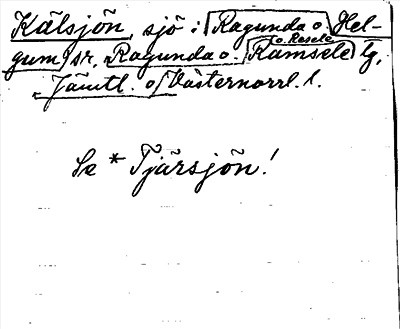 Kälsjön, sjö i Ragunda o. Hel-
gum sr, Ragunda o. Ramsele o. Resele tg,
Jämtl. o. Västernorrl. l.
Se * Tjärsjön!